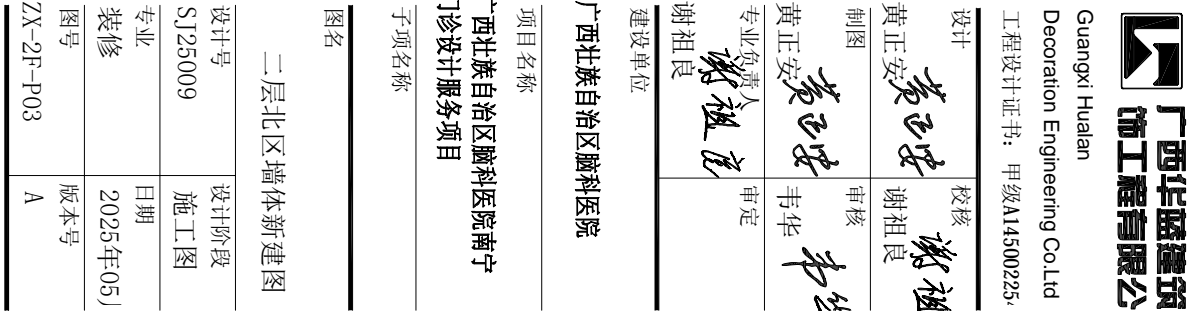 广西华蓝建筑
饰工程有限公
Guangxi Hualan
Decoration Engineering Co.Ltd
工程设计证书: 甲级A14500225
设计
黄正安
黄正安
校核
谢祖良
谢祖
制图
黄正安
黄正安
审核
韦华
韦华
专业负责人
谢祖良
谢祖良
审定
建设单位
广西壮族自治区脑科医院
项目名称
广西壮族自治区脑科医院南宁
门诊设计服务项目
子项名称
图名
二层北区墙体新建图
设计号
SJ25009
设计阶段
施工图
专业
装修
日期
2025年05月
图号
ZX-2F-P03
版本号
A